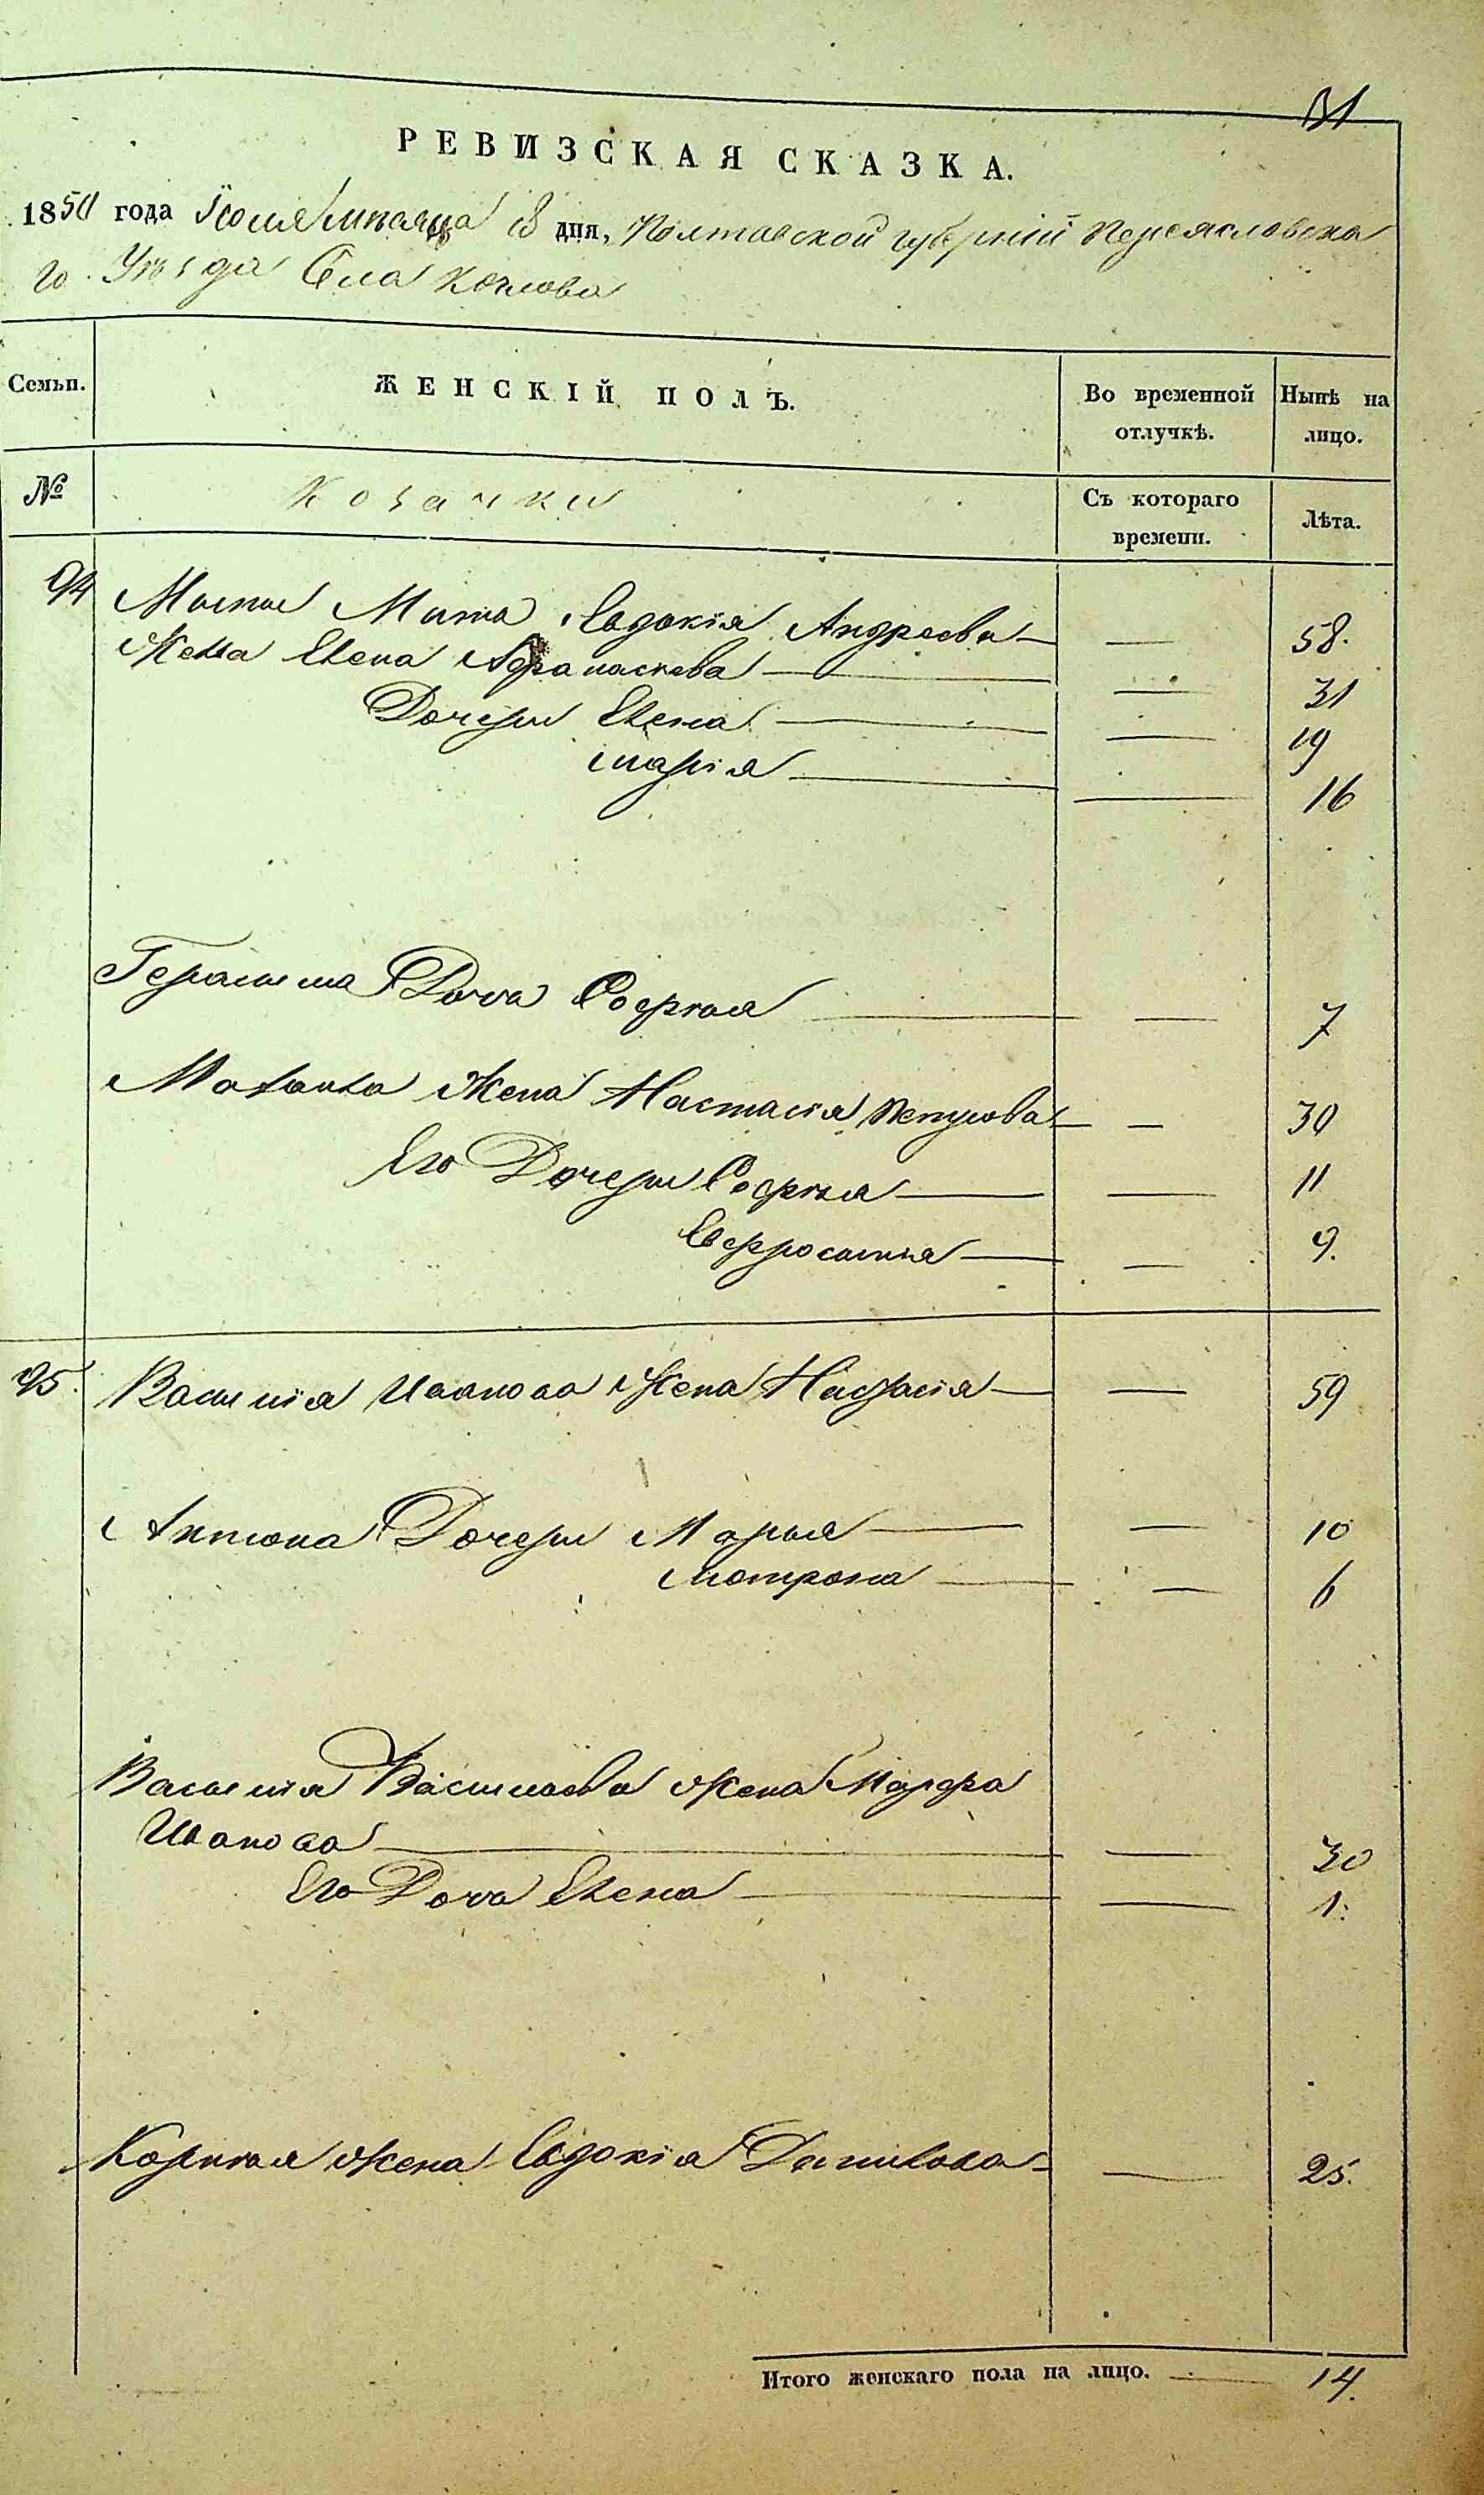 31
РЕВИЗСКАЯ СКАЗКА.
1850 года Іюля мѣсяца 18 дня, Полтавской губерніи Переясловска
го Уѣзда Села Козлова
Семьи. ЖЕНСКІЙ ПОЛЪ. Во временной отлучкѣ. Нынѣ на лицо.
№ Козачки Съ котораго времени. Лѣта.
94 Мать Евдокія Андреева — — 58.
Жена Елена Афанасиева — — 31
Дочери Елена — — 19
Марія — — 16
Герасима Доча Софія — — 7
Жена Настасія — — 30
Его Дочери Софія — — 11
Евфросинія — — 9.
95. Василія Иванова Жена Настасія — — 59
Антона Дочери Марья — — 10
Мотрона — — 6
Василія Васильева жена Марфа
Иванова — — 30
Его Доча Елена — — 1.
Корнія жена Евдокія Данилова — — 25.
Итого женскаго пола на лицо. — 14.